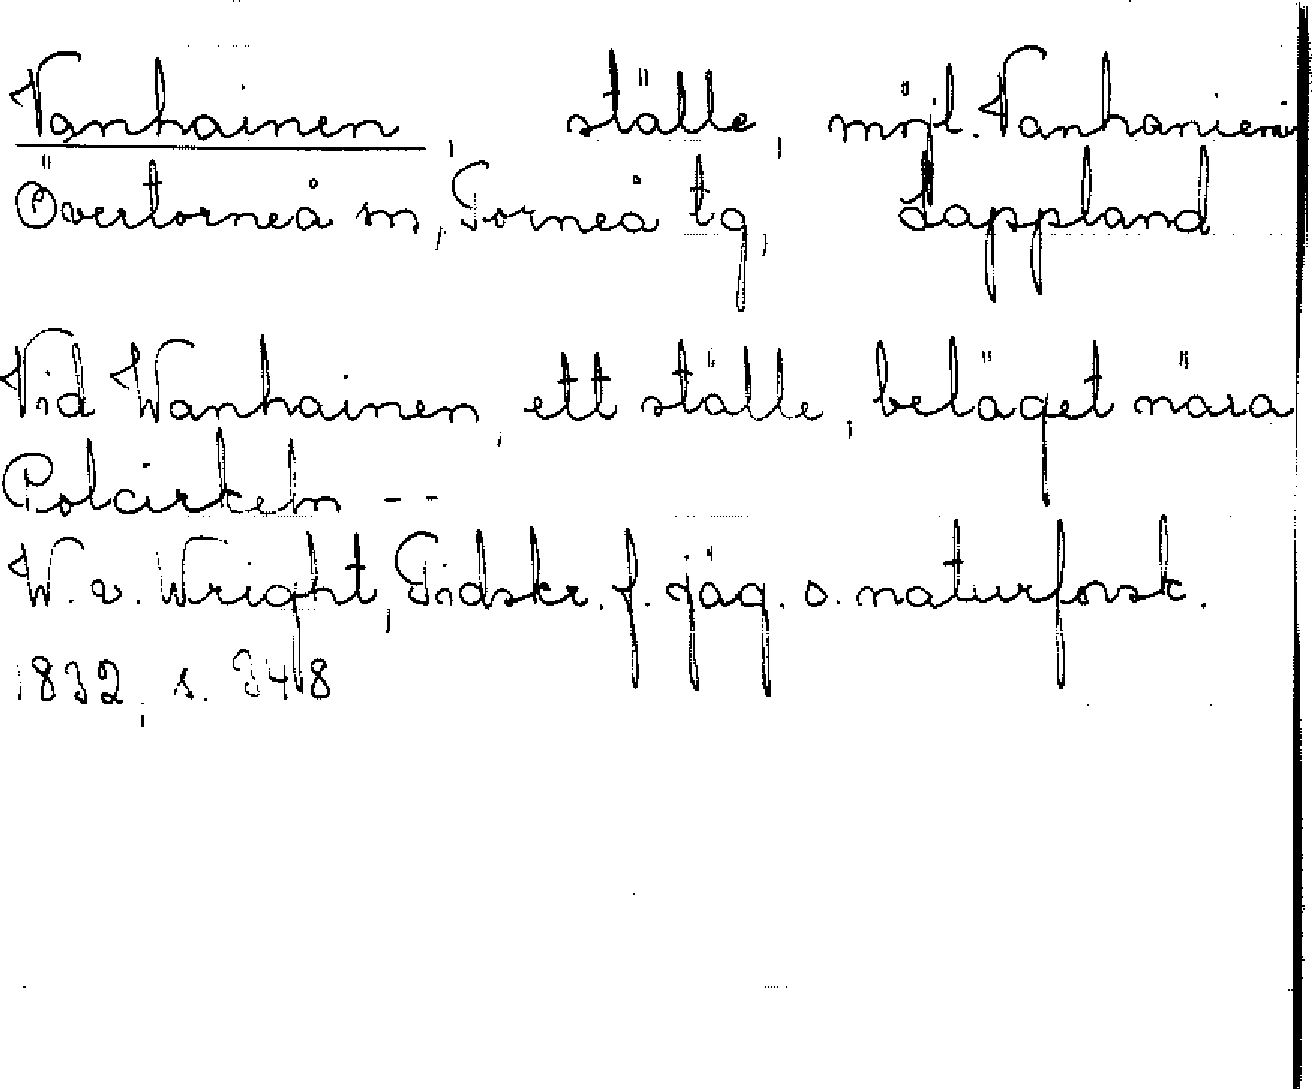 Vanhainen, ställe, möjl. Vanhaniemi
Övertorneå sn, Torneå tg, Lappland
Vid Wanhainen, ett ställe, beläget nära
Polcirkeln --
W. v. Wright, Tidskr. f. jäg. o. naturforsk.
1832, s. 348